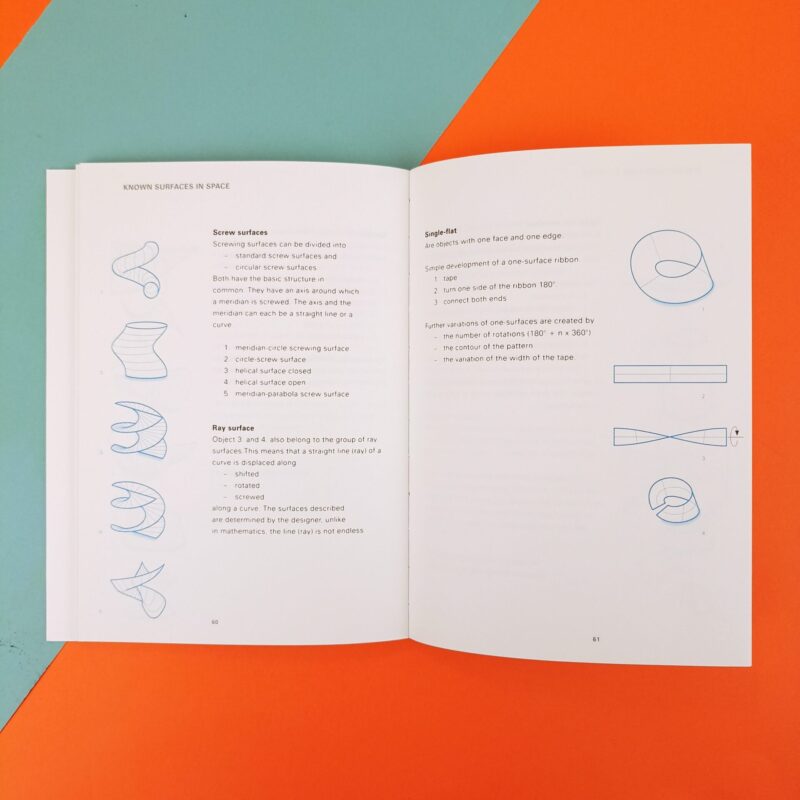 KNOWN SURFACES IN SPACE
Screw surfaces
Screwing surfaces can be divided into
- standard screw surfaces and
- circular screw surfaces
Both have the basic structure in
common. They have an axis around which
a meridian is screwed. The axis and the
meridian can each be a straight line or a
curve
1 meridian-circle screwing surface
2 circle-screw surface
3 helical surface closed
4 helical surface open
5 meridian-parabola screw surface
Ray surface
Object 3. and 4. also belong to the group of ray
surfaces.This means that a straight line (ray) of a
curve is displaced along
- shifted
- rotated
- screwed
along a curve. The surfaces described
are determined by the designer, unlike
in mathematics, the line (ray) is not endless.
60
Single-flat
Are objects with one face and one edge.
Simple development of a one-surface ribbon.
1 tape
2 turn one side of the ribbon 180°
3 connect both ends
Further variations of one-surfaces are created by
- the number of rotations (180° + n x 360°)
- the contour of the pattern
- the variation of the width of the tape.
1
2
3
4
61